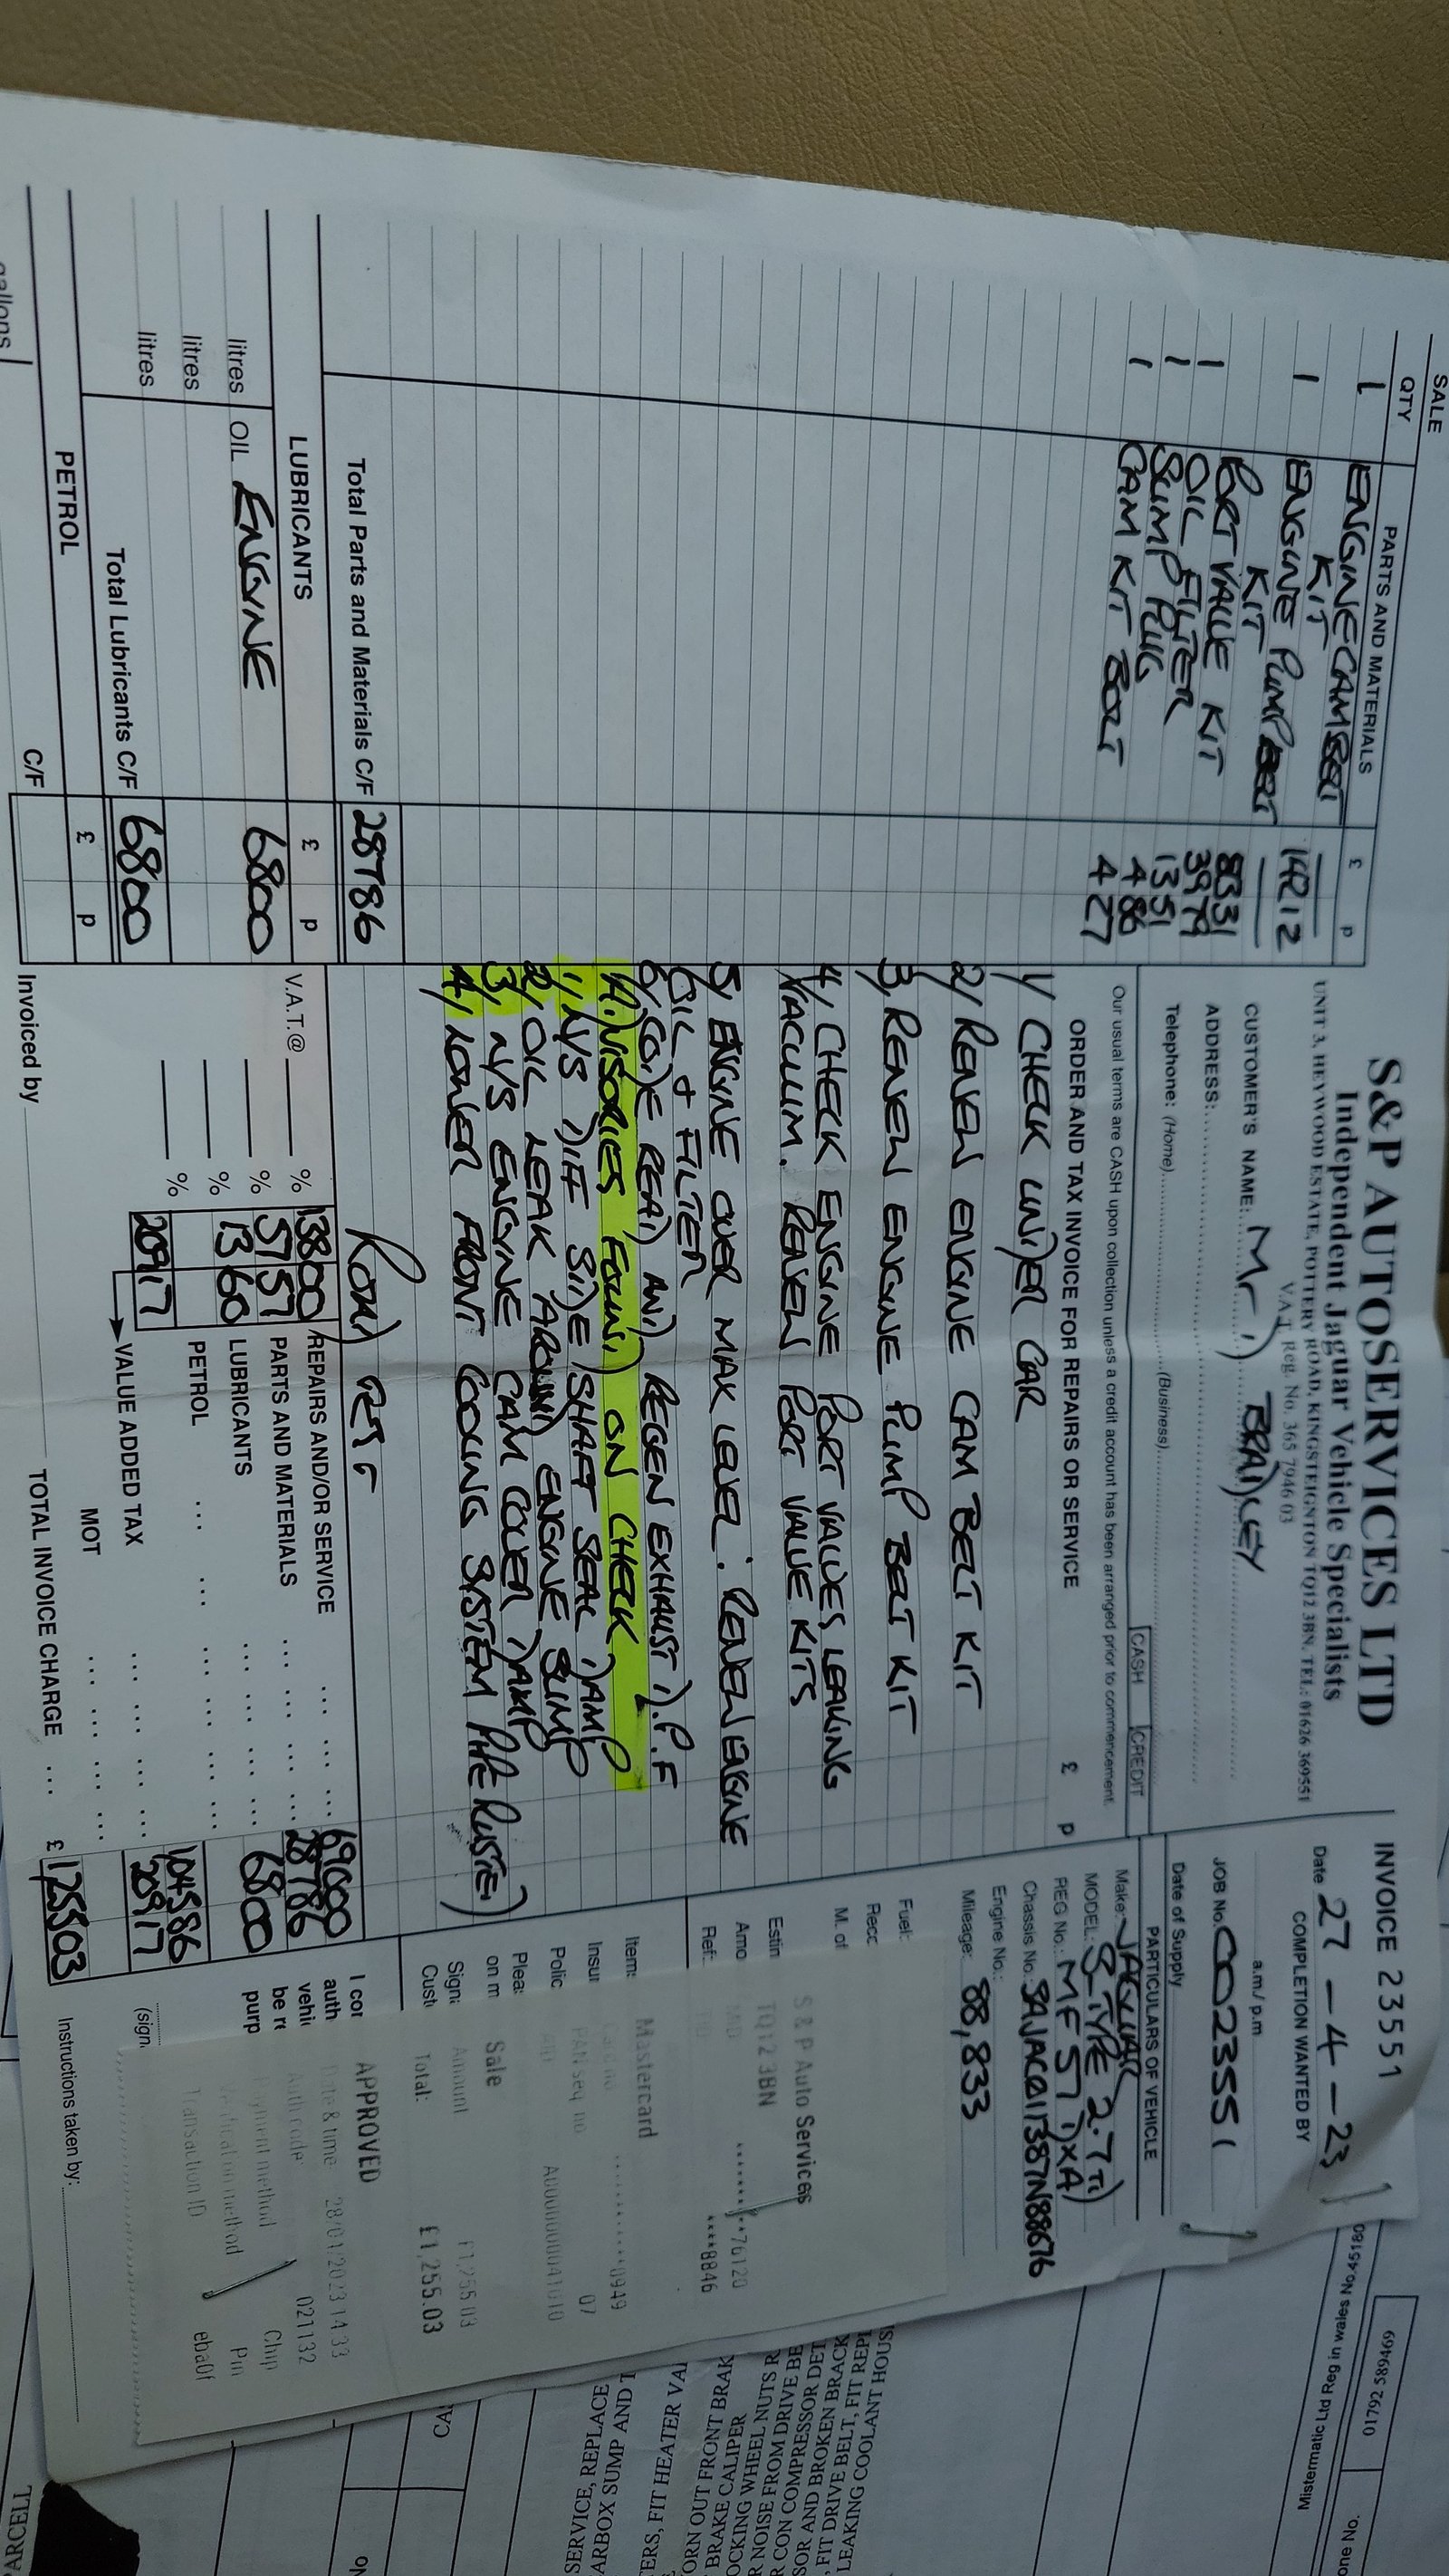 SALE
QTY PARTS AND MATERIALS £ p
1 ENGINE CAM BELT
KIT
1 ENGINE PUMP BELT 142 12
KIT
PORT VALUE KIT 83 31
1 OIL FILTER 39 79
1 SUMP PLUG 13 51
1 CAM KIT BOLT 4 86
4 27
Total Parts and Materials C/F 287 86
LUBRICANTS £ p
litres OIL ENGINE 68 00
litres
litres
Total Lubricants C/F 68 00
PETROL £ p
gallons C/F
S&P AUTOSERVICES LTD
Independent Jaguar Vehicle Specialists
UNIT 3, HEYWOOD ESTATE, POTTERY ROAD, KINGSTEIGNTON TQ12 3BN. TEL: 01626 369551
V.A.T. Reg. No. 365 7946 03
CUSTOMER'S NAME: Mr D BRADLEY
ADDRESS:
Telephone: (Home) (Business)
CASH CREDIT
Our usual terms are CASH upon collection unless a credit account has been arranged prior to commencement.
ORDER AND TAX INVOICE FOR REPAIRS OR SERVICE £ p
1/ CHECK UNDER CAR
2/ RENEW ENGINE CAM BELT KIT
3/ RENEW ENGINE PUMP BELT KIT
4/ CHECK ENGINE PORT VALUES LEAKING
VACUUM. RENEW PORT VALUE KITS
5/ ENGINE OVER MAX LEVEL. RENEW ENGINE
OIL + FILTER
6/ CODE READ AND REGEN EXHAUST D.P.F
ADVISORIES FOUND ON CHECK
1/ N/S DIFF SIDE SHAFT SEAL DAMP
2/ OIL LEAK AROUND ENGINE SUMP
3/ N/S ENGINE CAM COVER DAMP
4/ LOWER FRONT COOLING SYSTEM PIPE RUSTED
ROAD TEST
V.A.T.@ % 138 00 REPAIRS AND/OR SERVICE 690 00
% 57 57 PARTS AND MATERIALS 287 86
% 13 60 LUBRICANTS 68 00
% PETROL
1045 86
209 17 VALUE ADDED TAX 209 17
MOT
Invoiced by TOTAL INVOICE CHARGE £ 1255 03
INVOICE 23551
Date 27-4-23
COMPLETION WANTED BY
a.m/ p.m
JOB No. 0023551
Date of Supply
PARTICULARS OF VEHICLE
Make: JAGUAR
MODEL: S TYPE 2.7 TD
REG No.: MF57 DXA
Chassis No.: SAJAC01387N88676
Engine No.:
Mileage: 88,833
Fuel:
Recc
M. of
Estin
Amo
Ref:
Items
Insur
Polic
Plea
on m
Signa
Custo
I con
auth
vehic
be re
purp
(sign
Instructions taken by:
S & P Auto Services
TQ12 3BN
**76120
****8846
Mastercard
0949
PAN seq no 07
A0000000041010
Sale
Amount £1,255.03
Total: £1,255.03
APPROVED
Date & time 28/01/2023 14:33
Auth code: 021132
Payment method Chip
Verification method Pin
Transaction ID eba0f
Misternmatic Ltd Reg in wales
01792 589469
one No.
SERVICE, REPLACE
ARBOX SUMP AND
TERS, FIT HEATER VA
ORN OUT FRONT BRAK
BRAKE CALIPER
OCKING WHEEL NUTS R
R NOISE FROM DRIVE BE
R CON COMPRESSOR DET
SOR AND BROKEN BRACK
, FIT DRIVE BELT, FIT REPI
LEAKING COOLANT HOUS
ARCELL